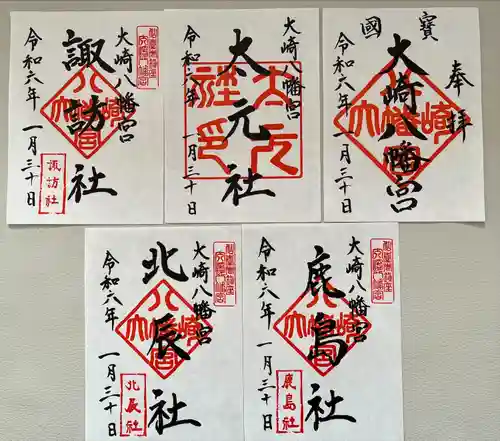 奉拝
寶
大崎八幡宮
國
令和六年 一月三十日
大崎八幡宮
太元社
太元社印
令和六年 一月三十日
大崎八幡宮
諏訪社
令和六年 一月三十日
諏訪社
大崎八幡宮
鹿島社
令和六年 一月三十日
鹿島社
大崎八幡宮
北辰社
令和六年 一月三十日
北辰社